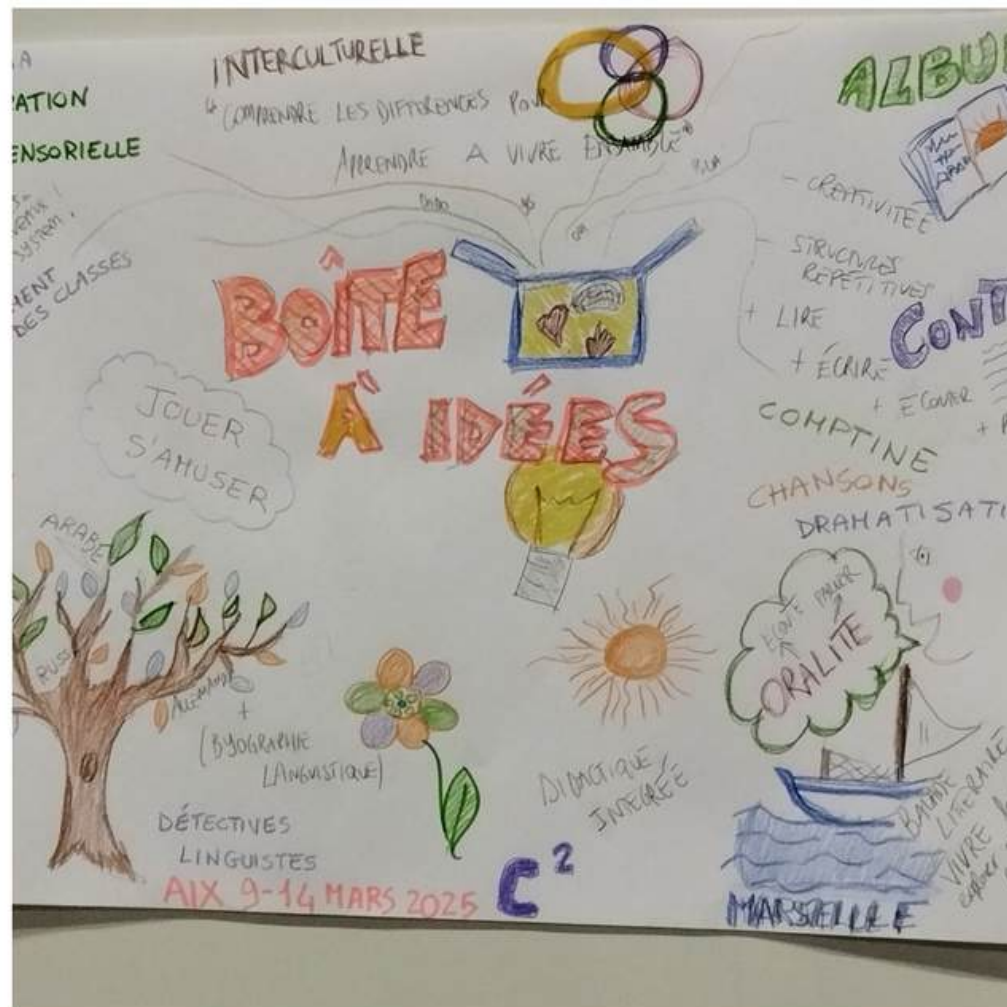 ATION
ENSORIELLE
MENT
DES CLASSES
INTERCULTURELLE
"COMPRENDRE LES DIFFERENCES POUR
APPRENDRE A VIVRE ENSAMBLE"
BLA
ALBU
- CREATIVITÉE
- STRUCTURES
RÉPÉTITIVES
+ LIRE
+ ÉCRIRE
CONT
+ ECOUTER
BOÎTE
À IDÉES
JOUER
S'AMUSER
COMPTINE
CHANSONS
DRAMATISATI
ARABE
RUSSE
ALLEMAND
+
(BYOGRAPHIE
LANGUISTIQUE)
DÉTECTIVES
LINGUISTES
AIX 9-14 MARS 2025
C²
DIDACTIQUE
INTEGRÉE
ECOUTE PARLER
ORALITÉ
BALADE
LITERAIRE
VIVRE
MARSEILLE